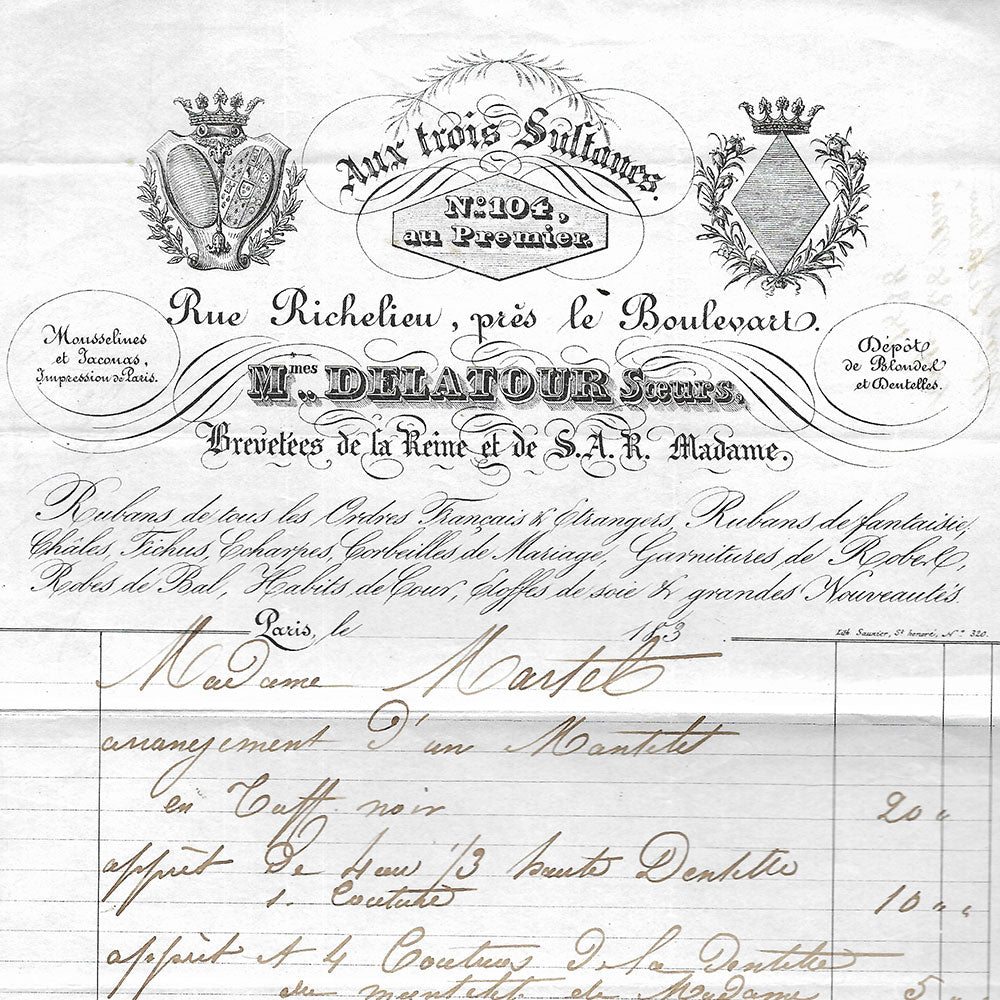 Aux trois Sultanes.
N.º 104,
au Premier.
Rue Richelieu, près le Boulevart.
Mousselines
et Jaconas,
Impression de Paris.
Dépôt
de Blondes
et Dentelles.
M.mes DELATOUR Sœurs,
Brevetées de la Reine et de S.A.R. Madame.
Rubans de tous les Ordres Français & Etrangers, Rubans de fantaisie,
Châles, Fichus, Echarpes, Corbeilles de Mariage, Garnitures de Robes,
Robes de Bal, Habits de Cour, Etoffes de soie & grandes Nouveautés.
Paris, le 183
Lith. Saunier, St. honoré, N.º 320.
Madame Martel
arrangement d'un Mantelet
en Taff noir 20 "
apprêt de 4 au 1/3 haute Dentelle
1. Couture 10 " "
apprêt et 4 Coutures de la Dentelle
du mantelet de Madame 5 "